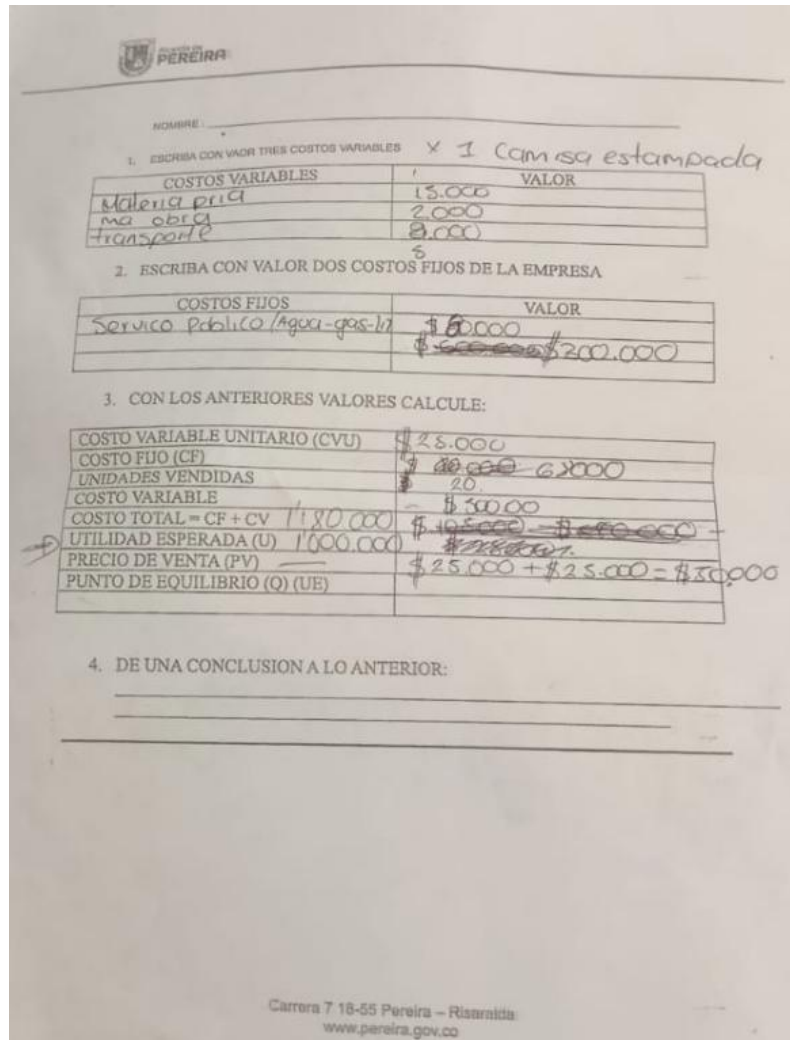 PEREIRA
NOMBRE:
1. ESCRIBA CON VAOR TRES COSTOS VARIABLES x 1 Camisa estampada
COSTOS VARIABLES VALOR
Materia pria 15.000
ma obra 2.000
transporte 8.000
8
2. ESCRIBA CON VALOR DOS COSTOS FIJOS DE LA EMPRESA
COSTOS FIJOS VALOR
Servico Publico (Agua-gas-lz $ 0.000
$ $200.000
3. CON LOS ANTERIORES VALORES CALCULE:
COSTO VARIABLE UNITARIO (CVU) $25.000
COSTO FIJO (CF) $
UNIDADES VENDIDAS 20
COSTO VARIABLE $500.00
COSTO TOTAL = CF + CV 1'180.000 $
UTILIDAD ESPERADA (U) 1'000.000
PRECIO DE VENTA (PV) $25.000 + $25.000 = $50.000
PUNTO DE EQUILIBRIO (Q) (UE)
4. DE UNA CONCLUSION A LO ANTERIOR:
Carrera 7 18-55 Pereira – Risaralda
www.pereira.gov.co